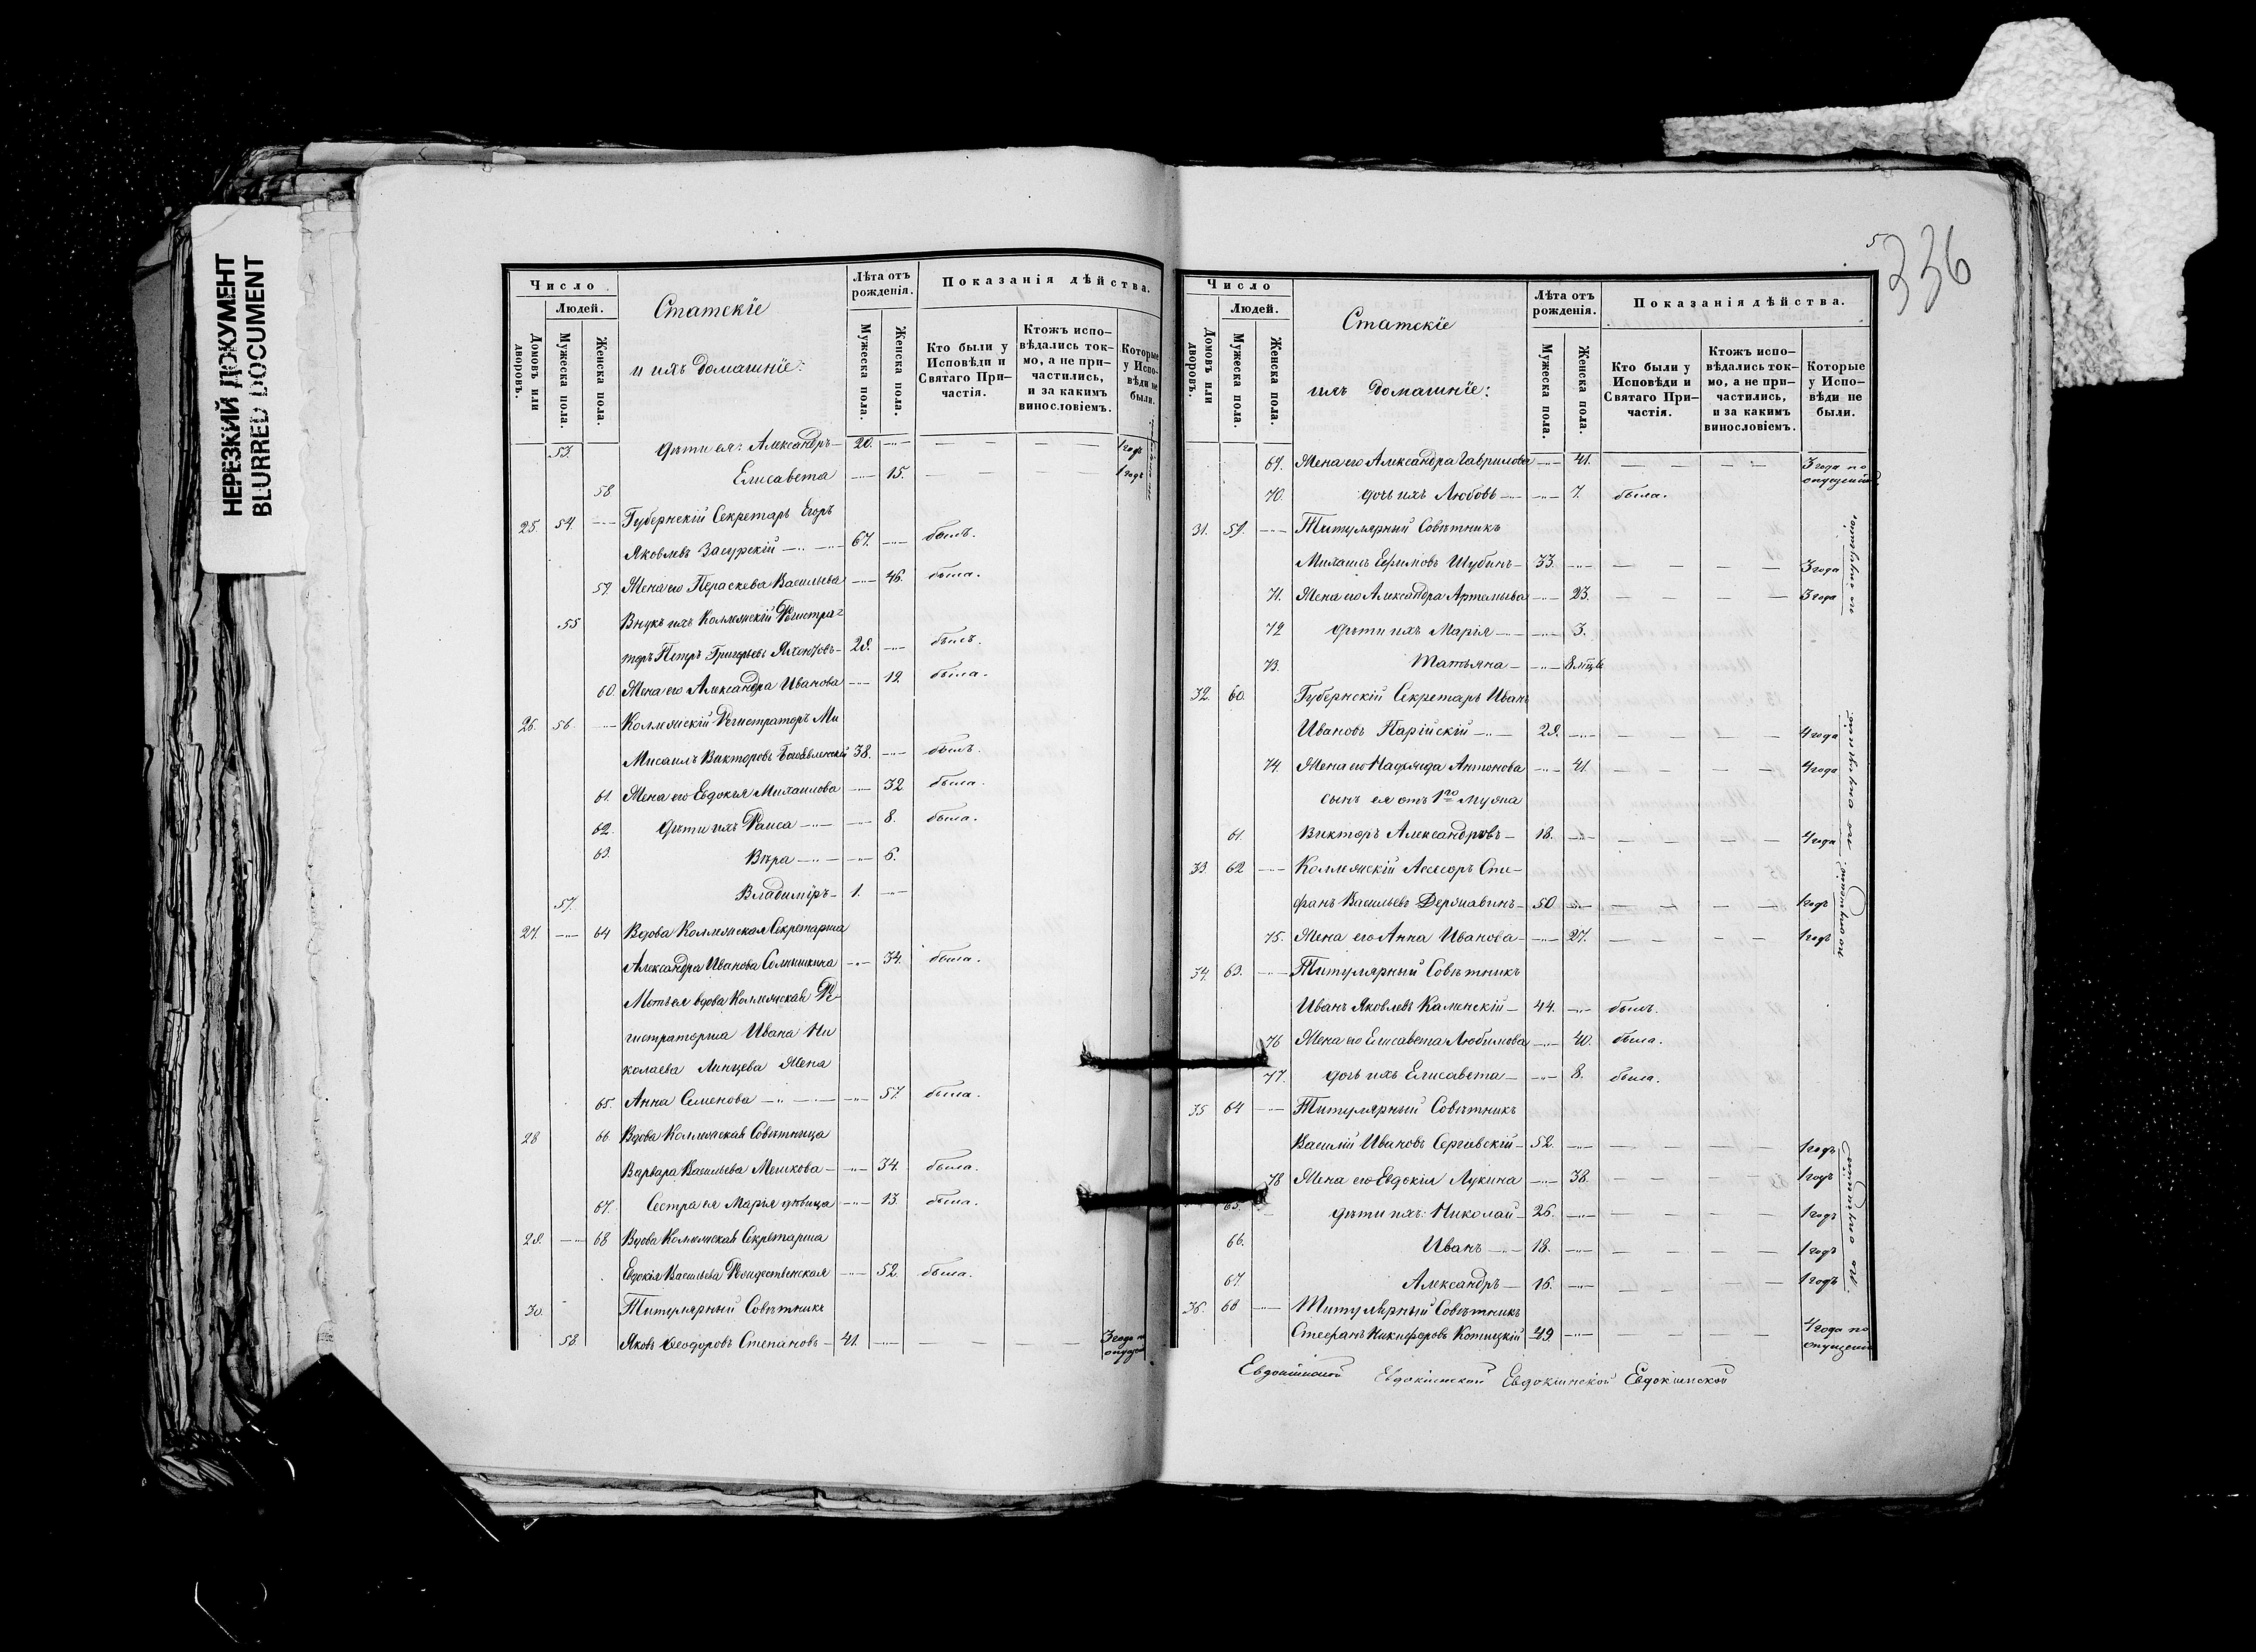 НЕРЕЗКИЙ ДОКУМЕНТ
BLURRED DOCUMENT
Число
Людей.
Домовъ или дворовъ.
Мужеска пола.
Женска пола.
Статскіе
и ихъ домашніе:
Лѣта отъ рожденія.
Мужеска пола.
Женска пола.
Показанія дѣйства.
Кто были у Исповѣди и Святаго Причастія.
Ктожъ исповѣдались токмо, а не причастились, и за какимъ винословіемъ.
Которые у Исповѣди не были.
53. дѣти ея: Александръ — 20. 1 годъ
58 Елисавета 15. 1 годъ
25. 54. Губернскій Секретарь Егоръ
Яковлевъ Засурскій 67. былъ.
59 Жена его Параскева Васильева 46. была.
55 Внукъ ихъ Коллежскій Регистра-
торъ Петръ Григорьевъ 28. былъ.
60. Жена его Александра Иванова 19. была.
26. 56. Коллежскій Регистраторъ Ми
Мисаилъ Викторовъ Богоявленскій 38. былъ.
61. Жена его Евдокія Михаилова 32 была.
62. дѣти ихъ Раиса 8. была.
63. Вѣра 6.
57. Владиміръ 1.
27. 64 Вдова Коллежская Секретарша
Александра Иванова Солнышкина 34. была.
Мать ея вдова Коллежская Ре-
гистраторша Ивана Ни
колаева Жена
65. Анна Семенова 57 была.
28 66. Вдова Коллежская Совѣтница
Варвара Васильева Мешкова 34. была.
67. Сестра ея Марія дѣвица 13. была.
29. 68 Вдова Коллежская Секретарша
Евдокія Васильева Рождественская 52. была.
30. Титулярный Совѣтникъ
58. Яковъ Ѳеодоровъ Степановъ 41. 3 года по
опущен
5
336
Число
Людей.
Домовъ или дворовъ.
Мужеска пола.
Женска пола.
Статскіе
ихъ домашніе:
Лѣта отъ рожденія.
Мужеска пола.
Женска пола.
Показанія дѣйства.
Кто были у Исповѣди и Святаго Причастія.
Ктожъ исповѣдались токмо, а не причастились, и за какимъ винословіемъ.
Которые у Исповѣди не были.
69. Жена его Александра Гаврилова 41. 3 года по
опущенію
70. дочь ихъ Любовь 7. была.
31. 59. Титулярный Совѣтникъ
Михаилъ Ефимовъ Шубинъ 33. 3 года
71. Жена его Александра Артемьева 23. 3 года
по опущенію,
72 дѣти ихъ Марія 3.
73. Татьяна 8 мѣць
32. 60. Губернскій Секретарь Иванъ
Ивановъ Парійскій 29. 4 года
74. Жена его Надежда Антонова 41. 4 года
сынъ ея отъ 1го мужа
61. Викторъ Александровъ 18. 4 года
по опущенію
33. 62 Коллежскій Асессоръ Сте-
фанъ Васильевъ Державинъ 50 1 годъ
75. Жена его Анна Иванова 27. 1 годъ
по опущенію
34. 63. Титулярный Совѣтникъ
Иванъ Яковлевъ Каменскій 44. былъ.
76 Жена его Елисавета Любимова 40. была.
77. дочь ихъ Елисавета 8. была.
35 64 Титулярный Совѣтникъ
Василій Ивановъ Сергіевскій 52. 1 годъ
78 Жена его Евдокія Лукина 38. 1 годъ
65. дѣти ихъ: Николай 26. 1 годъ
66. Иванъ 18. 1 годъ
67 Александръ 16. 1 годъ
по опущенію
36. 68 Титулярный Совѣтникъ
Стефанъ Никифоровъ Котицкій 49. 4 года по
опущенію
Евдокіинской Евдокіинской Евдокіинской Евдокіинской